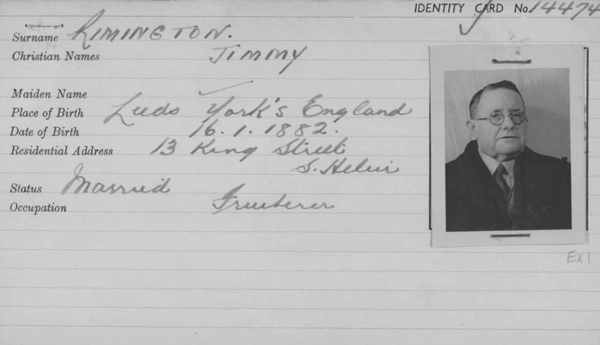 IDENTITY CARD No. 14474
Surname RIMINGTON.
Christian Names JIMMY
Maiden Name
Place of Birth Leeds York's England
Date of Birth 16.1.1882.
Residential Address 13 King Street
S. Helier
Status Married
Occupation Fruiterer
EX1